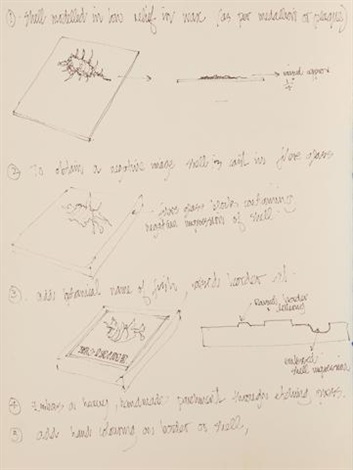 ① Shell modelled in low relief in wax (as per medallion or plaque)
② To obtain a negative image shell is cast in fibre glass
fibre glass blocks containing
negative impression of shell.
③ add botanical name of fish, words border etc.
Raised border
embossed
shell impression
④ Emboss a heavy, handmade parchment through etching press.
⑤ add hand colouring on border or shell,